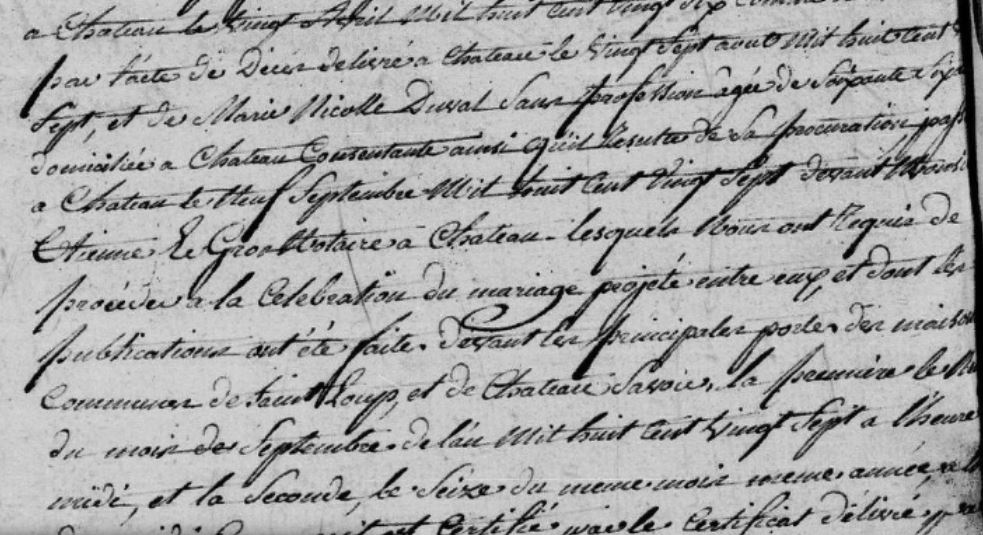 a Chateau le vingt Avril Mil huit Cent vingt six comme
par l'acte de Décès délivré a Chateau le Vingt Sept aout Mil huit Cent
Sept, et de Marie Nicolle Duval Sans profession agée de Soixante Six
domiciliée a Chateau Consentante ainsi qu'il Résulte de Sa procuration pass
a Chateau le Neuf Septembre Mil huit Cent Vingt Sept devant Monsi
Etienne Le Gros Notaire a Chateau. lesquels Nous ont Requis de
procéder a la Celebration du mariage projeté entre eux, et dont les
publications ont été faites devant les principales portes des maisons
Communes de Saint Loup, et de Chateau Savoir, la première le
du mois de Septembre de l'an Mil huit Cent Vingt Sept a l'heure
midi, et la Seconde, le Seize du meme mois meme année,
est Certifié par le Certificat délivré